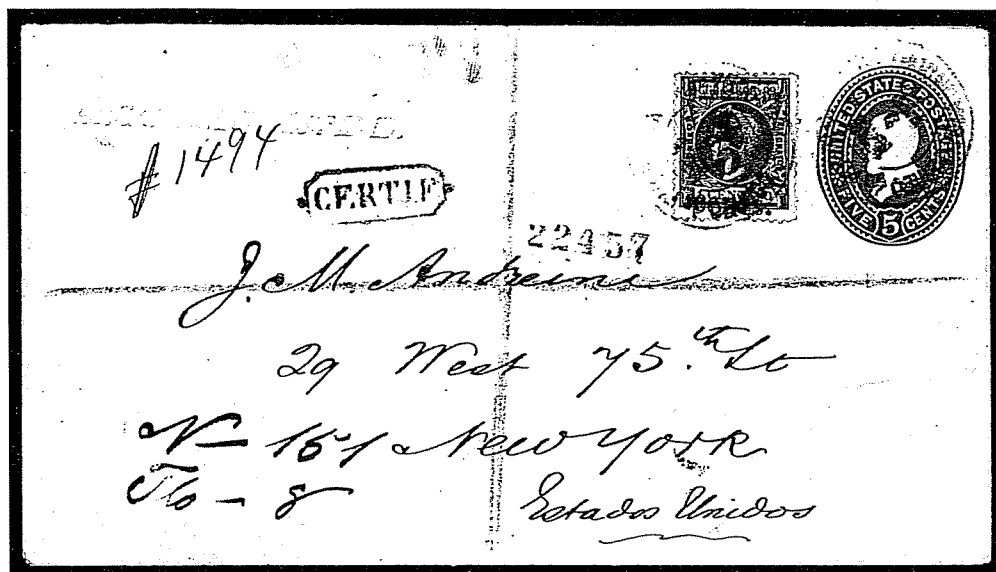 # 1494
CERTIF
UNITED STATES POSTAGE
FIVE 5 CENTS
22457
J. M. Andreini
29 West 75.th St
N- 151 New York
Flo - 8
Estados Unidos